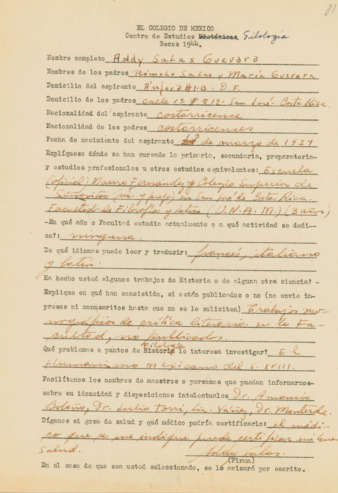 81
EL COLEGIO DE MEXICO
Centro de Estudios Históricos Filología
Becas 1944.
Nombre completo Addy Salas Guevara
Nombres de los padres Rómulo Salas y María Guevara
Domicilio del aspirante D.F.
Domicilio de los padres calle 13 # 812- San José- Costa Rica
Nacionalidad del aspirante costarricense
Nacionalidad de los padres costarricenses
Fecha de nacimiento del aspirante de marzo de 1921
Explíquese dónde se han cursado la primaria, secundaria, preparatoria-
y estudios profesionales u otros estudios equivalentes: Escuela
(oficial) Mauro Fernández y Colegio Superior de
Señoritas, en San José de Costa Rica.
Facultad de Filosofía y Letras (U.N.A.M.) (3 años)
-En qué año o Facultad estudia actualmente o a qué actividad se dedi-
ca?: ninguna.
De qué idiomas puede leer y traducir: francés, italiano
y latín.
Ha hecho usted algunos trabajos de Historia o de alguna otra ciencia? -
Explique en qué han consistido, si están publicados o no (no envíe im-
presos ni manuscritos hasta que no se le solicite) Trabajos mo-
nográficos de crítica literaria en la Fa-
cultad, no publicados.
Qué problemas o puntos de Historia Filología le interesa investigar? El
Humanismo Mexicano del S. XVIII.
Facilítenos los nombres de maestros o personas que puedan informarnos-
sobre su idoneidad y disposiciones intelectuales Dr. Amancio
Bolaño, Dr. Julio Torri, Lic. Yáñez, Dr. Monterde.
Díganos si goza de salud y qué médico podría certificarlo: el médi-
co que se me indique puede certificar mi buena
salud. Addy Salas.
(Firma)
En el caso de que sea usted seleccionado, se le avisará por escrito.